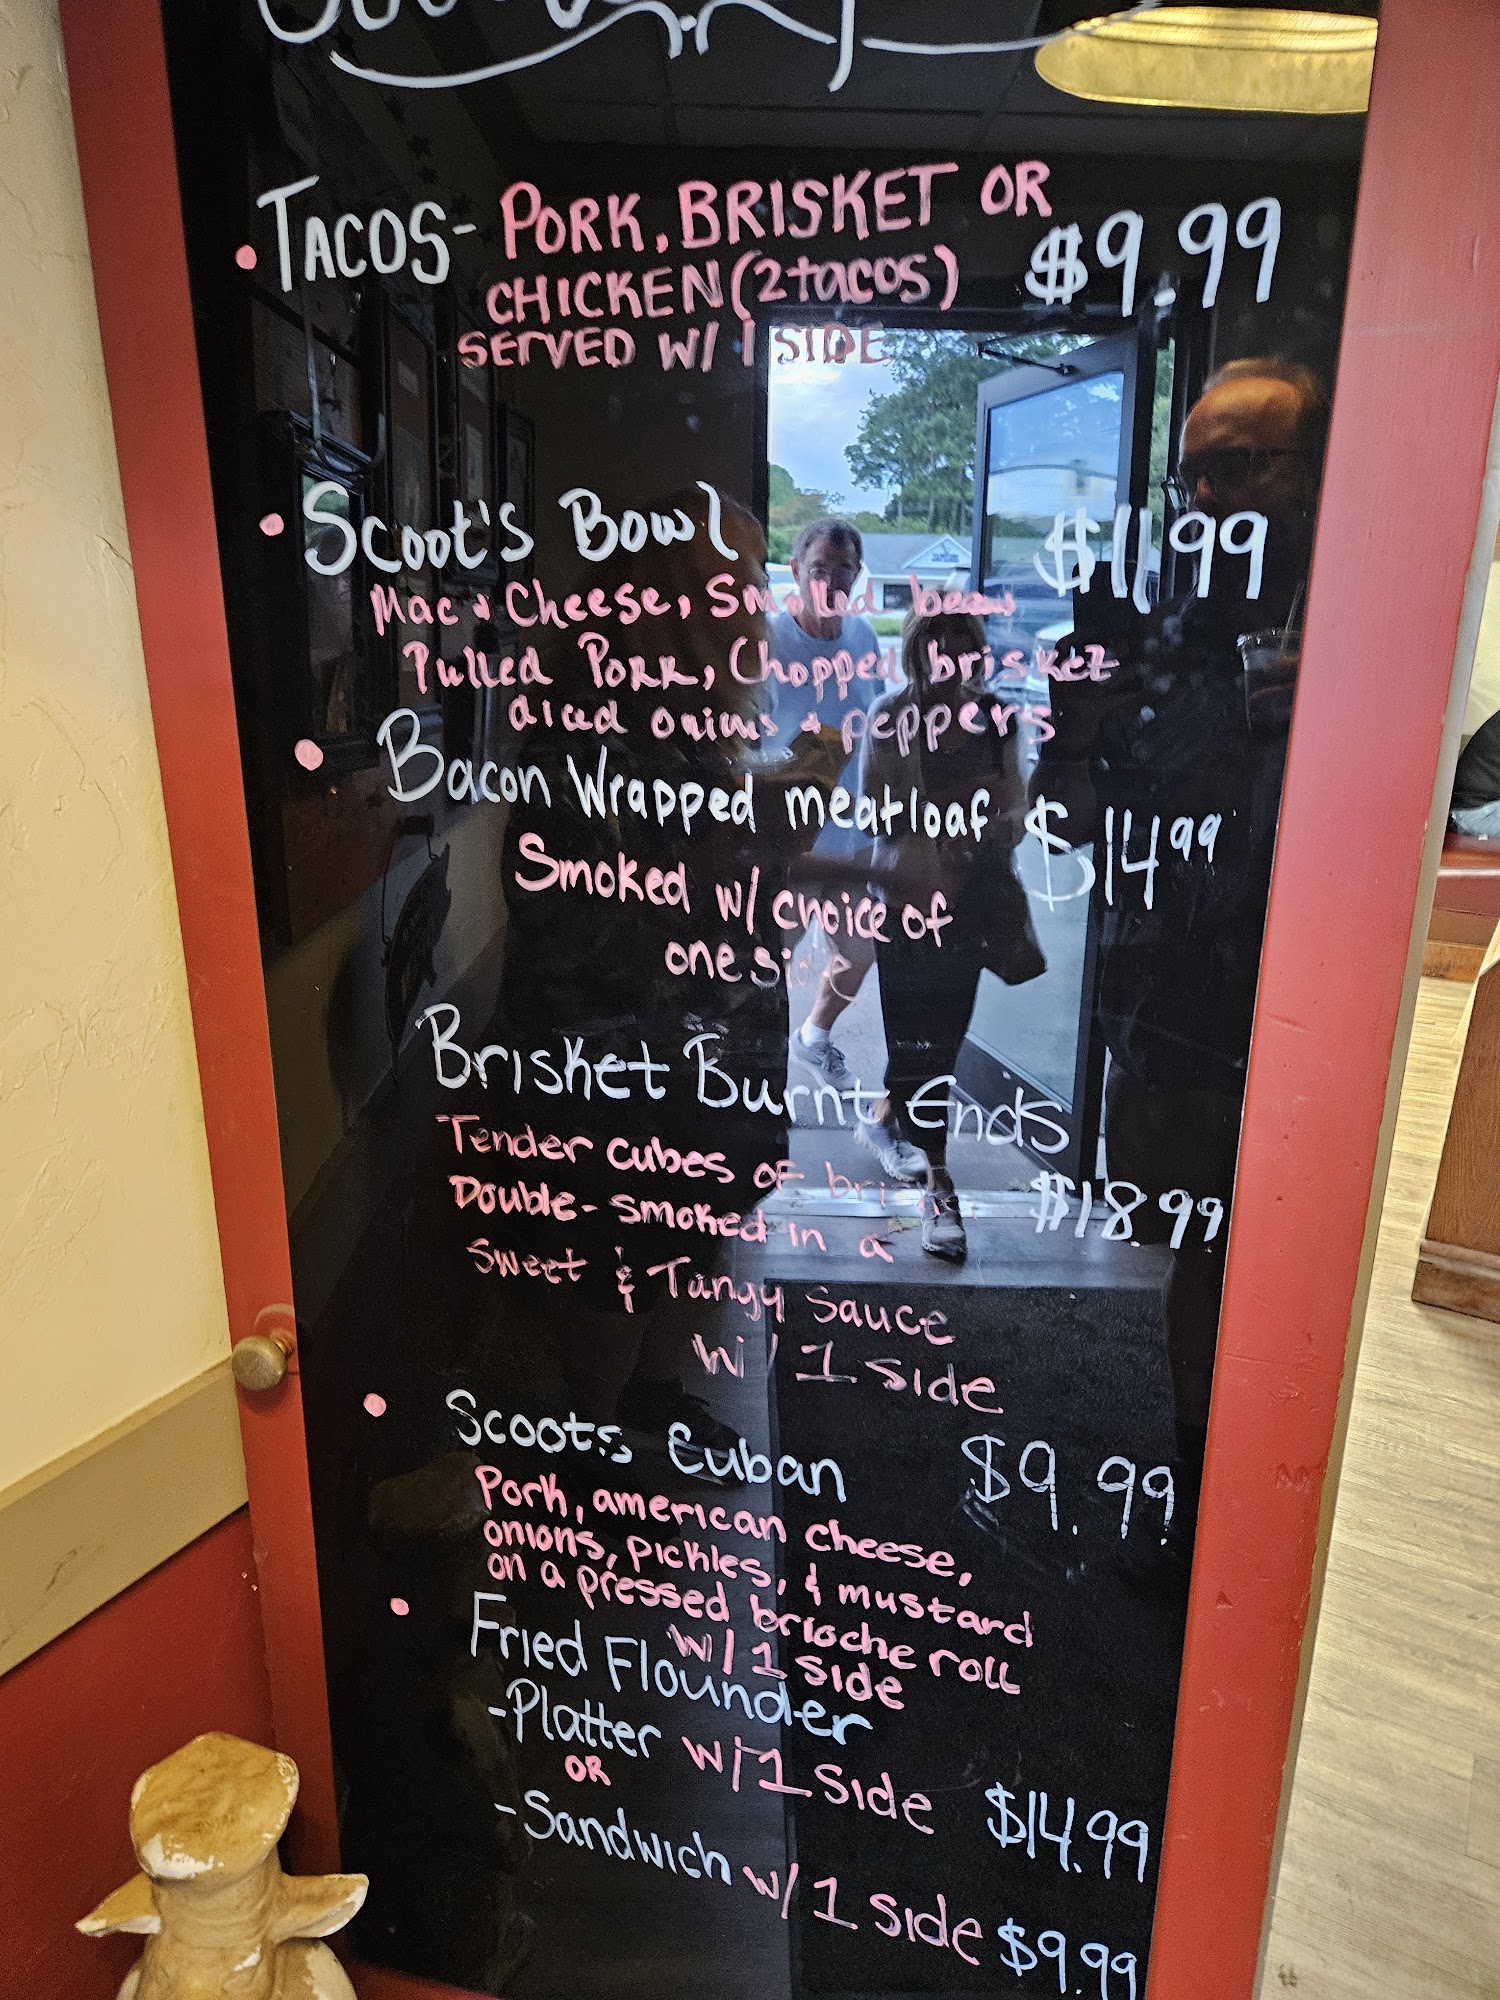 • TACOS - PORK, BRISKET OR
CHICKEN (2 tacos) $9.99
SERVED W/ 1 SIDE
• Scoot's Bowl $11.99
Mac & Cheese, Smoked beans
Pulled Pork, Chopped brisket
diced onions & peppers
• Bacon Wrapped meatloaf $14.99
Smoked w/ choice of
one side
Brisket Burnt Ends
Tender cubes of
Double-smoked in a $18.99
Sweet & Tangy Sauce
w/ 1 side
• Scoots Cuban $9.99
Pork, american cheese,
onions, pickles, & mustard
on a pressed brioche roll
w/ 1 side
• Fried Flounder
-Platter w/ 1 side $14.99
OR
-Sandwich w/ 1 side $9.99